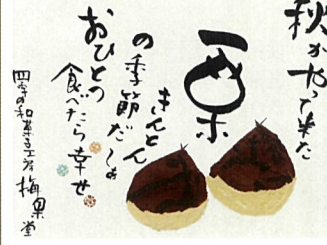 秋がやって来た
栗
きんとん
の季節だよ
おひとつ
食べたら幸せ
四季の和菓子工房 梅果堂